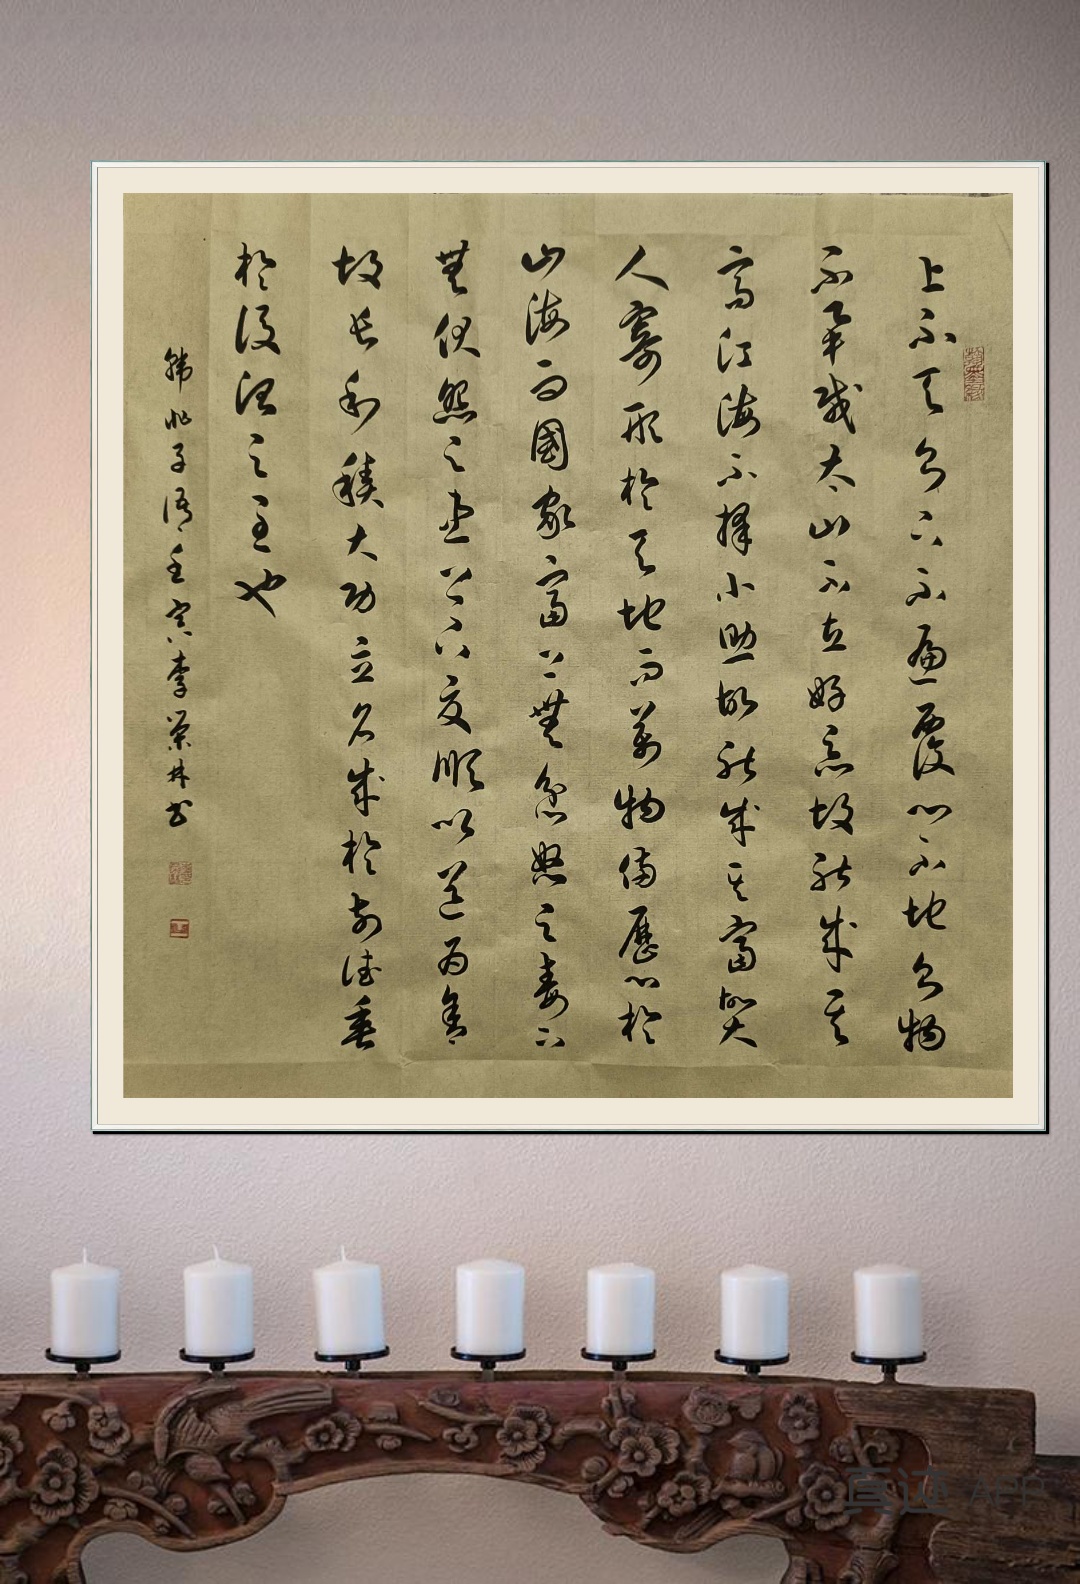 上不天則下不遍覆心不地則物
不畢載太山不立好惡故能成其
高江海不擇小助故能成其富故大
人寄形於天地而萬物備歷心於
山海而國家富上無忿怒之毒下
無伏怨之患上下交順以道為舍
故長利積大功立名成於前德垂
於後治之至也
韓非子語壬寅李榮林書
真迹APP